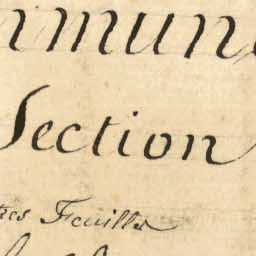 mmun
Section
tres Feuilles